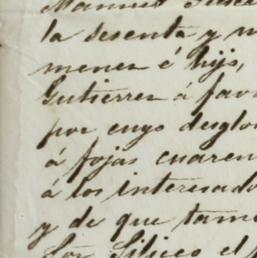 Manuel
la sesenta y
menez é hijo,
Gutierrez á favo
por cuyo desglo
á fojas cuaren
á los interesado
y de que tam
el